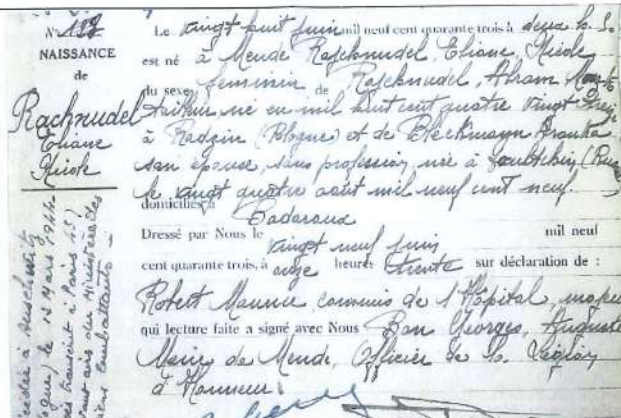 N° 132
NAISSANCE
de
Rachnudel
Eliane
Nicole
Le vingt huit juin mil neuf cent quarante trois à deux h. S.
est né à Mende Rajchnudel, Eliane, Nicole
du sexe féminin de Rajchnudel, Abram
tailleur, né en mil huit cent quatre vingt
à Radzin (Pologne) et de Bleckmann Branka
son épouse, sans profession, née à
le vingt quatre août mil neuf cent neuf.
domiciliés à Badaroux
Dressé par Nous le vingt neuf juin mil neuf
cent quarante trois, à onze heures trente sur déclaration de :
Robert Maurice, commis de l'Hôpital,
qui lecture faite a signé avec Nous Bon Georges, Auguste
Maire de Mende, Officier de la Légion
d'Honneur.
décédée à Auschwitz
le 12 Mars 1944
transcrit à Paris 15
avis du Ministère des
Combattants